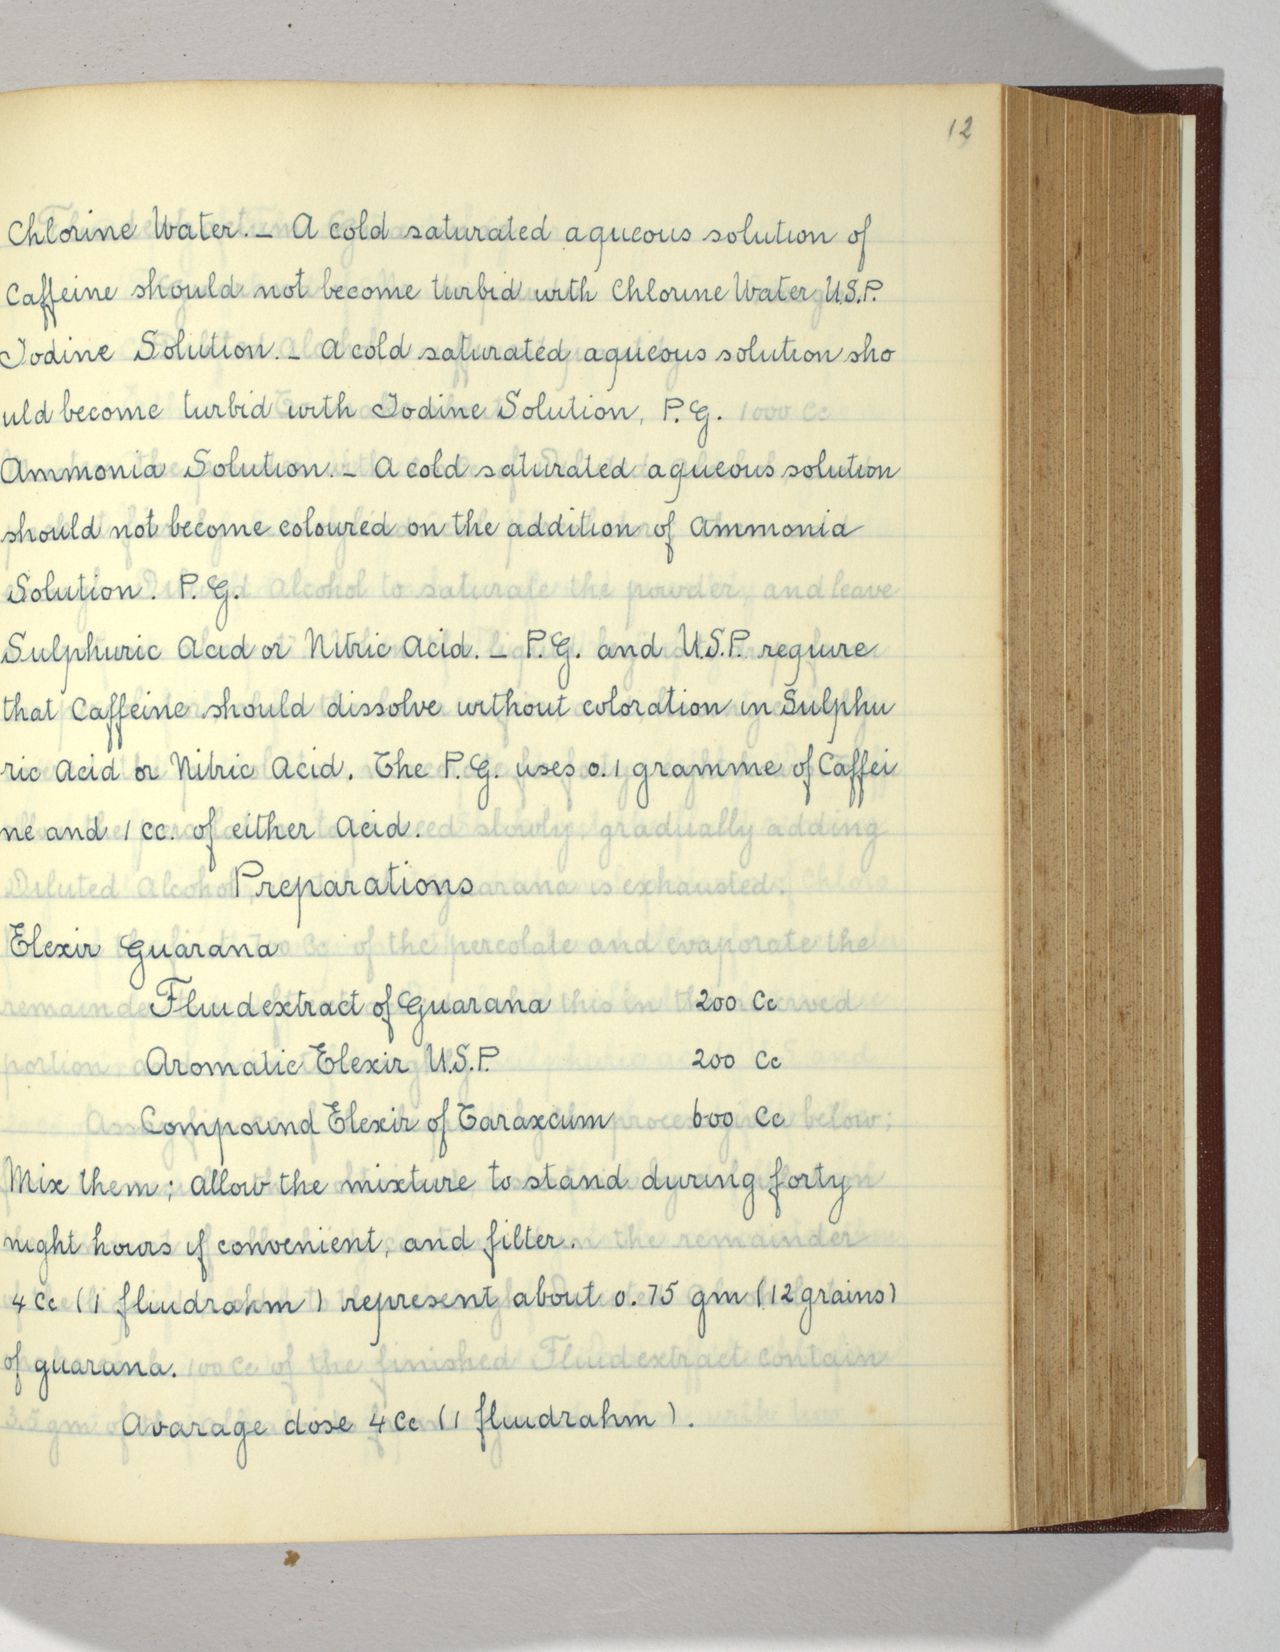 12
Chlorine Water. _ A cold saturated aqueous solution of
Caffeine should not become turbid with Chlorine Water U.S.P.
Iodine Solution. _ A cold saturated aqueous solution sho
uld become turbid with Iodine Solution, P.G.
Ammonia Solution. _ A cold saturated aqueous solution
should not become coloured on the addition of Ammonia
Solution. P.G.
Sulphuric Acid or Nitric Acid. _ P.G. and U.S.P. require
that Caffeine should dissolve without coloration in Sulphu
ric Acid or Nitric Acid. The P.G. uses 0.1 gramme of Caffei
ne and 1 cc. of either Acid.
Preparations
Elexir Guarana
Fluidextract of Guarana 200 Cc
Aromatic Elexir U.S.P. 200 Cc
Compound Elexir of Taraxcum 600 Cc
Mix them; allow the mixture to stand during forty
night hours if convenient, and filter.
4 Cc (1 fluidrahm) represent about 0.75 gm (12 grains)
of guarana.
Avarage dose 4 Cc (1 fluidrahm).